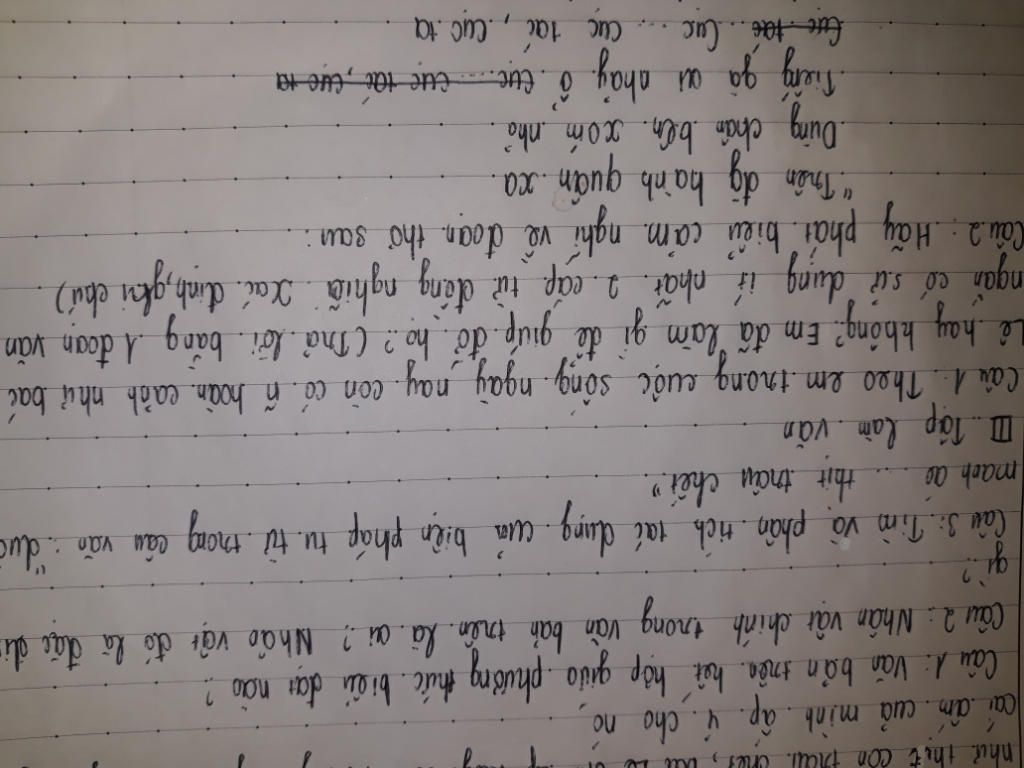 như thịt con trâu chết, bà Lê
cái ấm của mình ấp ủ cho nó
Câu 1: Văn bản trên kết hợp giữa phương thức biểu đạt nào?
Câu 2: Nhân vật chính trong văn bản trên là ai? Nhân vật đó là đặc
gì?
Câu 3: Tìm và phân tích tác dụng của biện pháp tu từ trong câu văn: "dưới
manh áo ... thịt trâu chết".
III Tập làm văn
Câu 1: Theo em trong cuộc sống ngày nay còn có n~ hoàn cảnh như bác
Lê hay không? Em đã làm gì để giúp đỡ họ? (Trả lời bằng 1 đoạn văn
ngắn có sử dụng ít nhất 2 cặp từ đồng nghĩa. Xác định, ghi chú)
Câu 2: Hãy phát biểu cảm nghĩ về đoạn thơ sau:
"Trên đg hành quân xa
Dừng chân bên xóm nhỏ
Tiếng gà ai nhảy ổ cục ... cục tác, cục ta
Cục tác Cục ... cục tác, cục ta